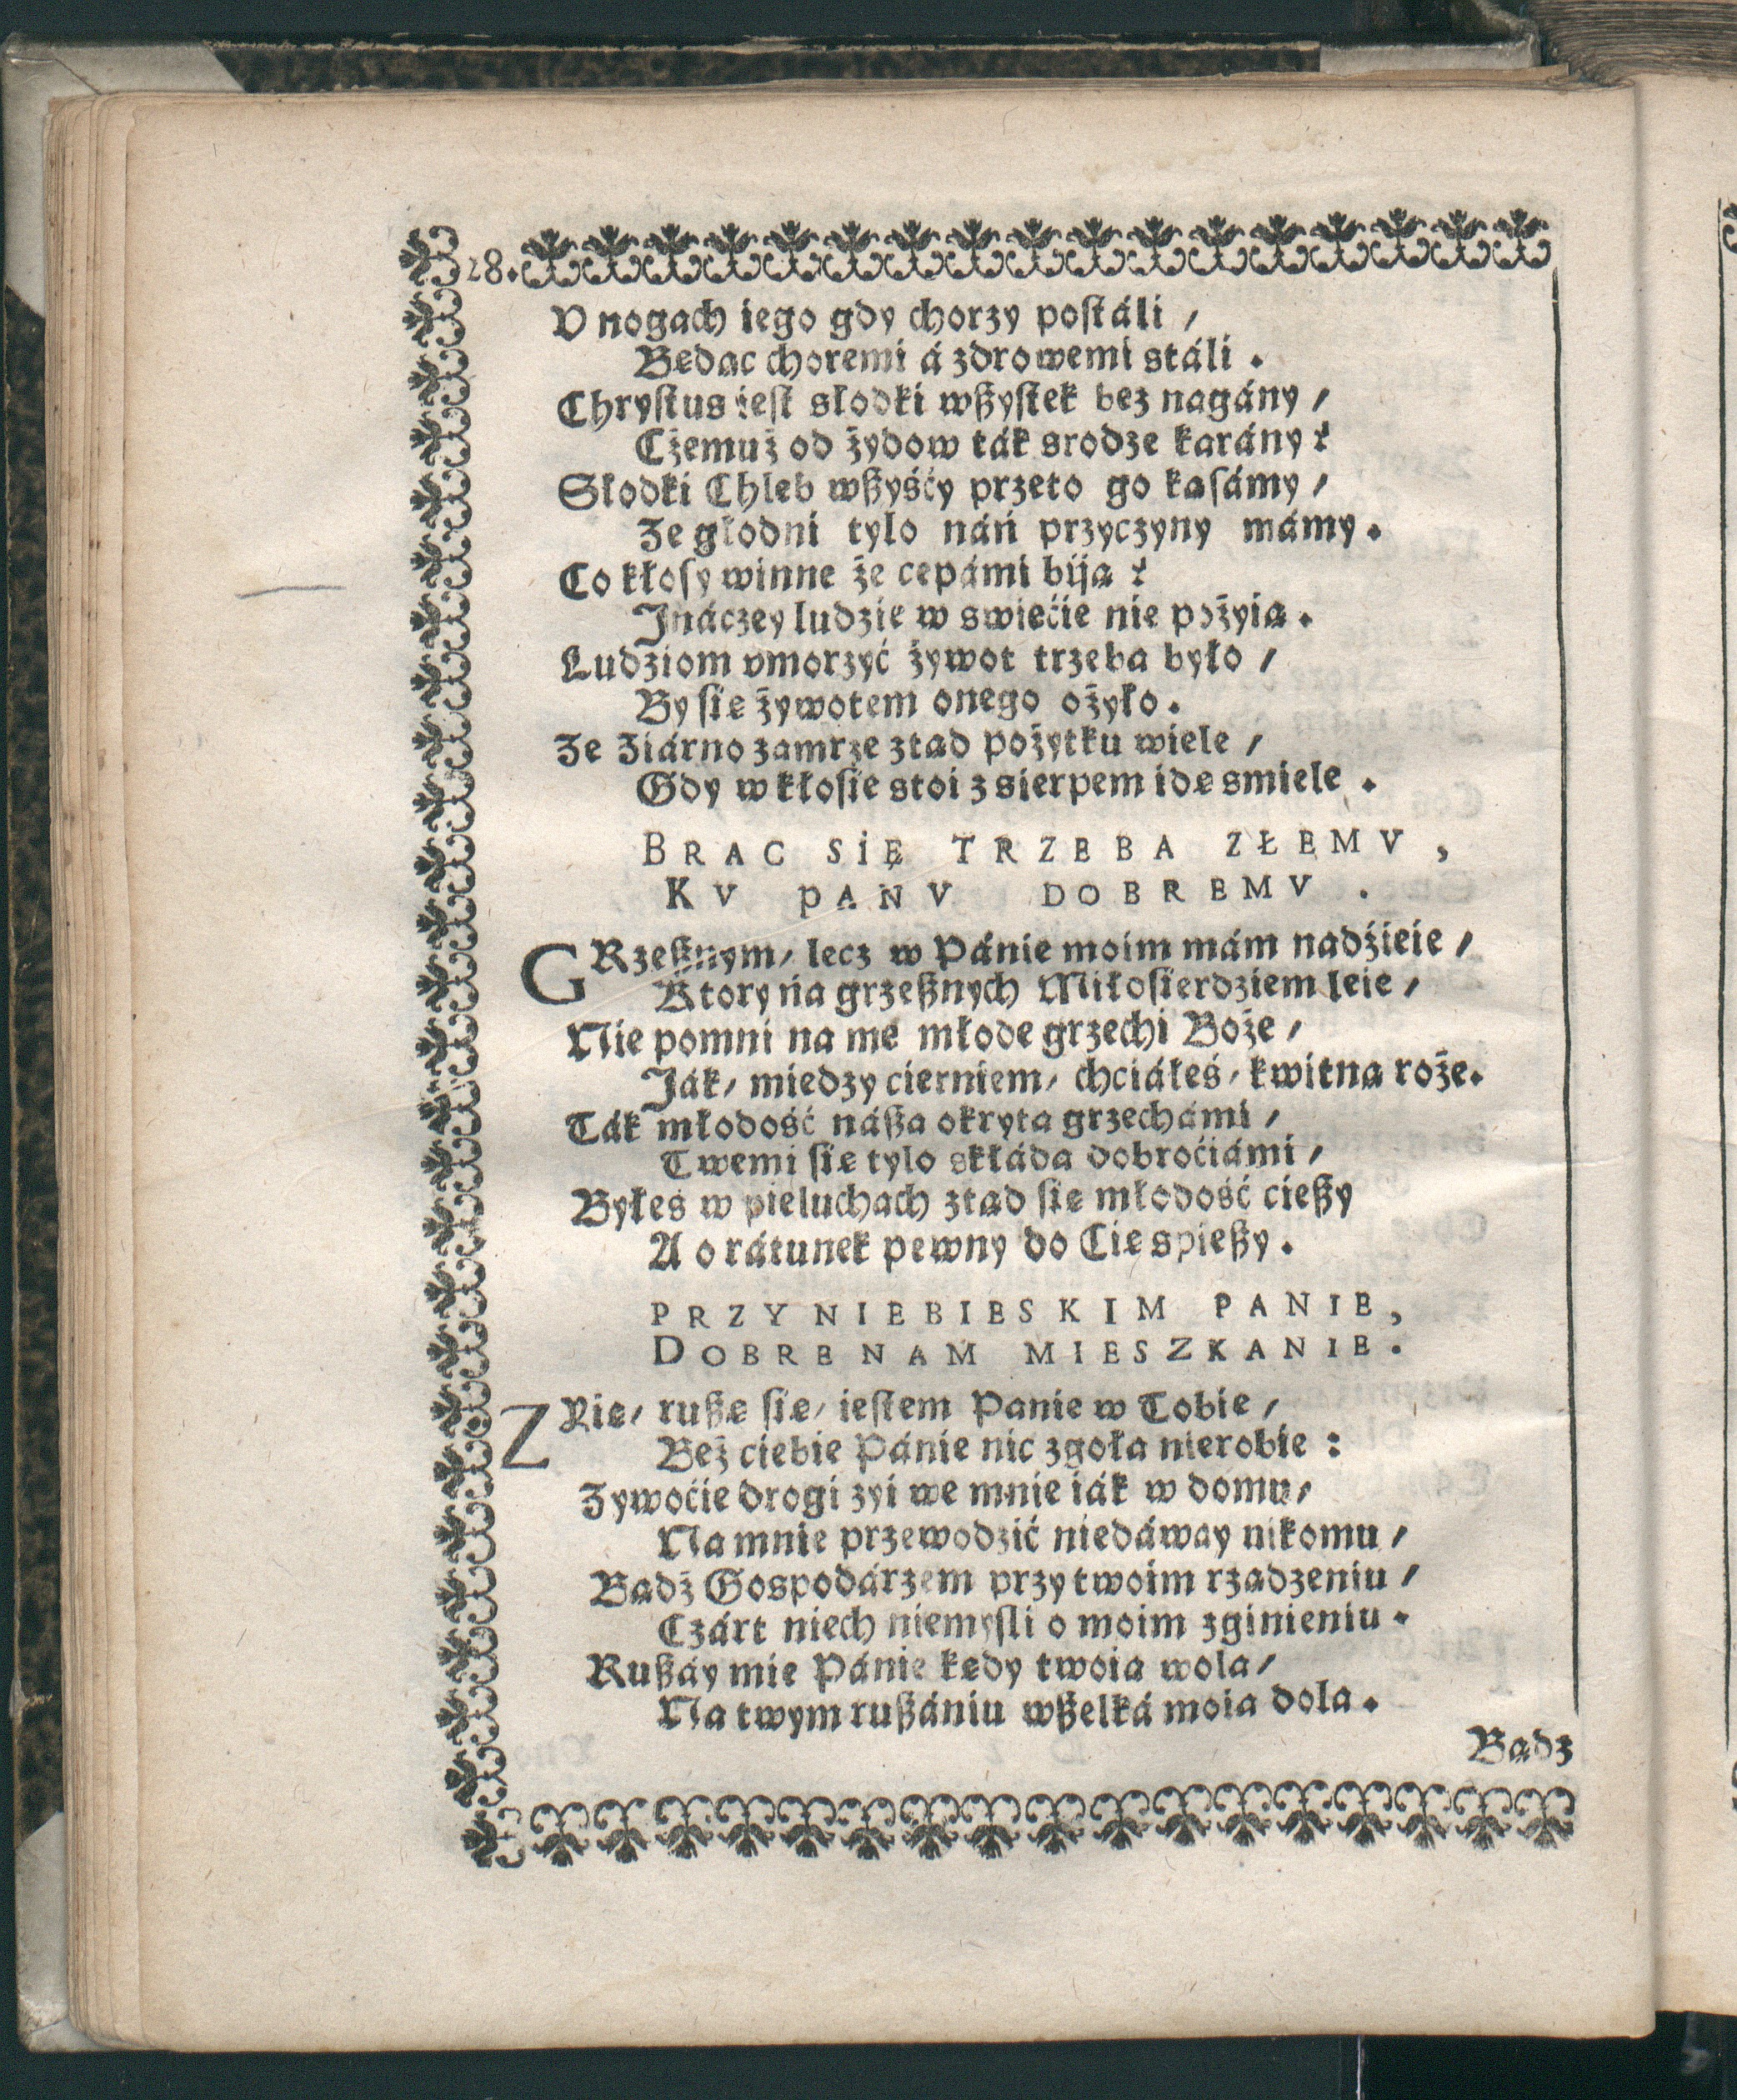 28.
V nogach iego gdy chorzy postáli /
Będąc choremi á zdrowemi stáli .
Chrystus iest słodki wßystek bez nagány /
Cżemuż od żydow ták srodze karány ?
Słodki Chleb wßyśćy przeto go kąsámy /
Ze głodni tylo náń przyczyny mámy .
Co kłosy winne że cepámi biją ?
Ináczey ludzie w swiećie nie pożyią .
Ludziom vmorzyć żywot trzeba było /
By się żywotem onego ożyło .
Ze Ziárno zamrze ztąd pożytku wiele /
Gdy w kłosie stoi z sierpem idę smiele .
BRAC SIĘ TRZEBA ZŁEMV ,
KV PANV DOBREMV .
GRzeßnym / lecz w Pánie moim mám nadźieię /
Ktory ná grzeßnych Miłosierdziem leie /
Nie pomni na me młode grzechi Boże /
Ják / miedzy cierniem / chciáłeś / kwitną roże .
Ták młodość náßa okryta grzechámi /
Twemi się tylo skłáda dobroćiámi /
Byłes w pieluchach ztąd się młodość cießy
A o rátunek pewny do Cię spießy .
PRZY NIEBIESKIM PANIE ,
DOBRE NAM MIESZKANIE .
ZYię / rußę się / iestem Panie w Tobie /
Beż ciebie Pánie nic zgoła nierobię :
Zywoćie drogi żyi we mnie iák w domu /
Na mnie przewodzić niedáway nikomu /
Bądż Gospodárzem przy twoim rządzeniu /
Czárt niech niemysli o moim zginieniu .
Rußáy mie Pánie kędy twoia wola /
Na twym rußániu wßelká moia dola .
Bądz